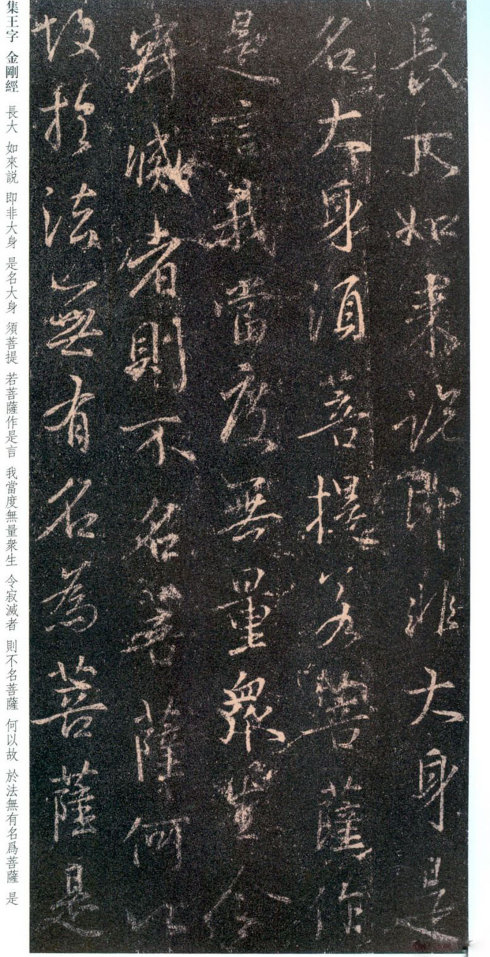 長大如来説即非大身是
名大身須菩提若菩薩作
是言我當度無量衆生令
寂滅者則不名菩薩何以
故於法無有名為菩薩是
集王字 金剛經 長大 如來説 即非大身 是名大身 須菩提 若菩薩作是言 我當度無量衆生 令寂滅者 則不名菩薩 何以故 於法無有名爲菩薩 是